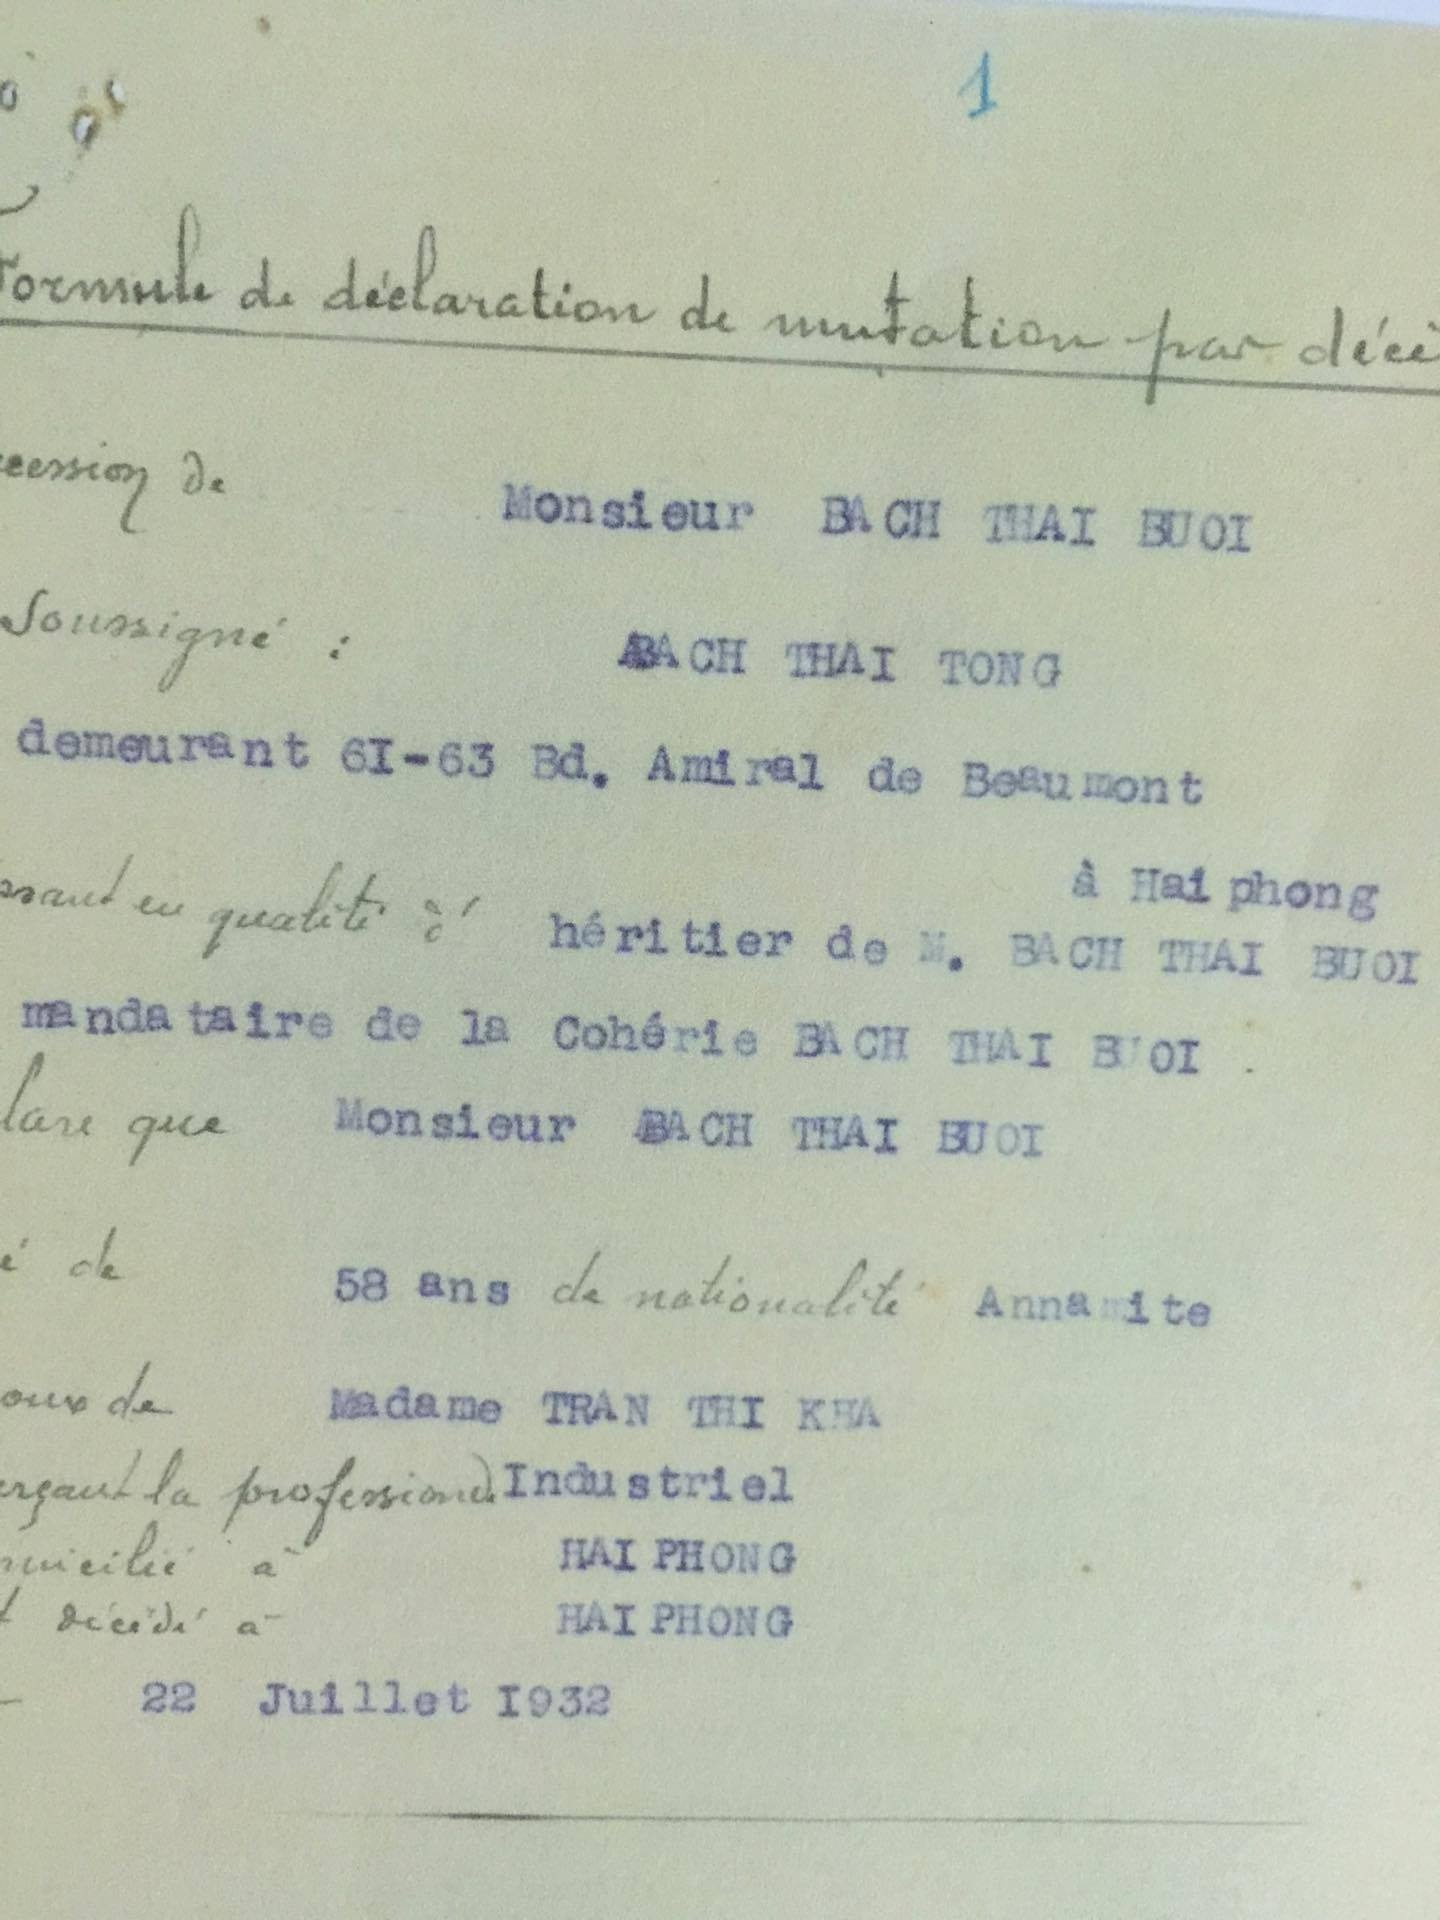 1
Formule de déclaration de mutation par décè
cession de Monsieur BACH THAI BUOI
Soussigné : BACH THAI TONG
demeurant 6I-63 Bd. Amiral de Beaumont
à Haiphong
ssant en qualité d' héritier de M. BACH THAI BUOI
mandataire de la Cohérie BACH THAI BUOI .
lare que Monsieur BACH THAI BUOI
é de 58 ans de nationalité Annamite
oux de Madame TRAN THI KHA
erçant la profession d' Industriel
micilié à HAIPHONG
t décédé à HAIPHONG
22 Juillet I932